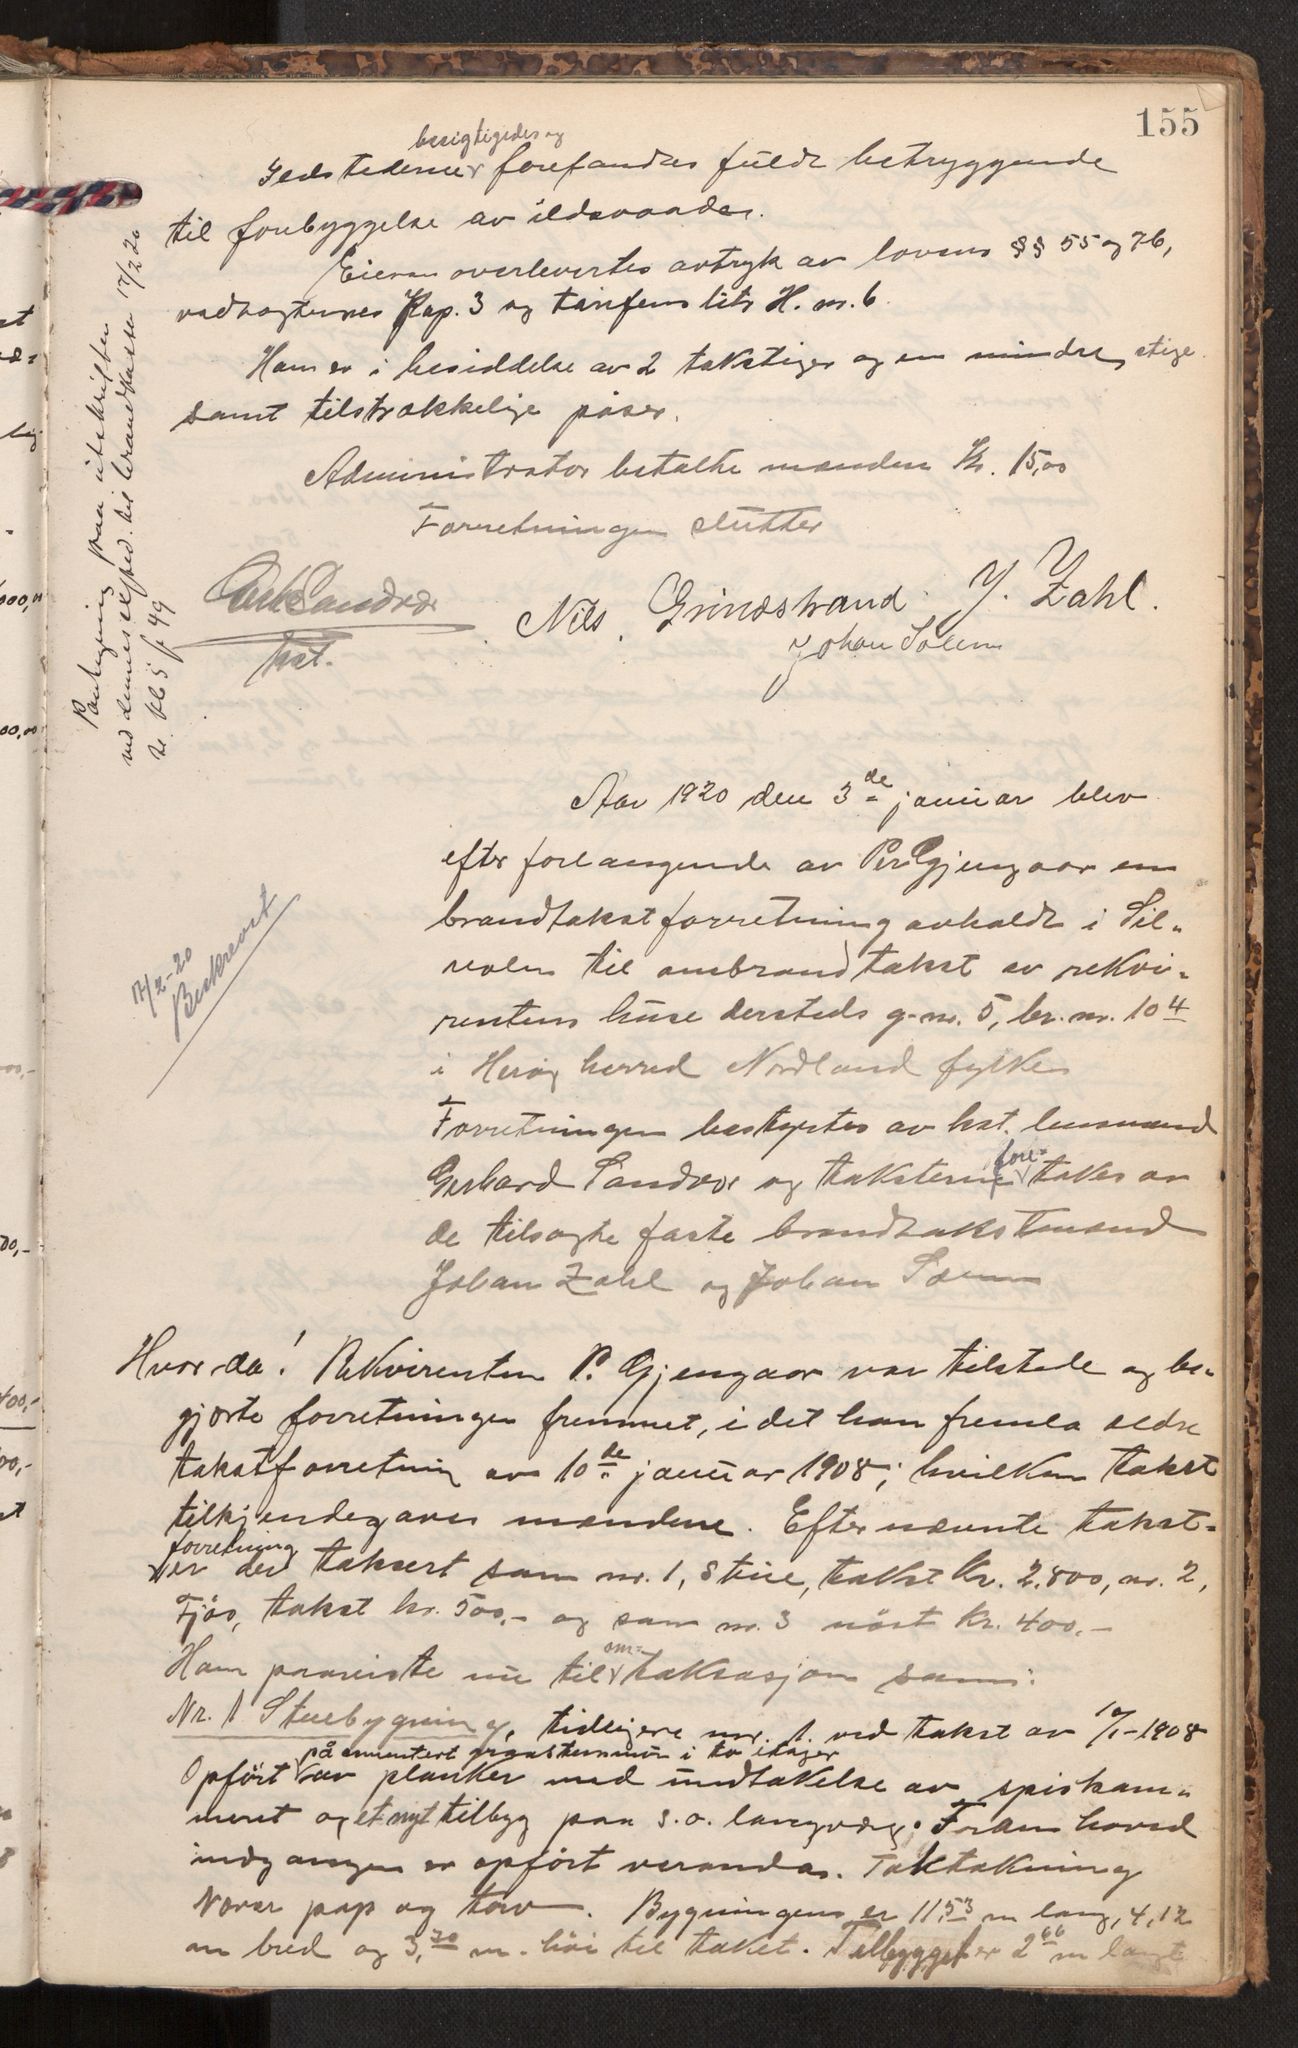 155
besigtigedes og
Ildstederne forefandtes fuldt betryggende
til forebyggelse av ildsvaade.
Eieren overlevertes avtryk av lovens §§ 55 og 76,
vedtægternes Kap. 3 og tariffens litr H. m. 6
Han er i besiddelse av 2 takstiger og en mindre stige
samt tilstrækkelige pøser.
Administrator betalte mændene Kr. 15,00
Forretningen slutter
Sandvær
hst.
Nils Grindstrand J. Zahl.
Johan Solem
Paategning paa utskriften
ved dennes exped. til brandkassa 17/2 20
Aar 1920 den 3de januar blev
efter forlangende av Per Gjengaar en
brandtakstforretning avholdt i Sil-
valen til ombrandtakst av rekvi-
rentens huse dersteds g-nr. 5, br. nr. 104
i Herøy herred Nordland fylke
Forretningen bestyrtes av hst. lensmand
Gerhard Sandvær og taksterne fore- takes av
de tilsagte faste brandtakstmænd
Johan Zahl og Johan Solem
17/2-20
Beskrevet
Hvorda! Rekvirenten P. Gjengaar var tilstede og be-
gjærte forretningen fremmet, i det han fremla ældre
takstforretning av 10de januar 1908; hvilken takst
tilkjendegaves mændene. Efter nævnte takst-
forretning
er der taksert som nr. 1, Stue, takst kr. 2.800, nr. 2,
Fjøs, takst kr. 500,- og som nr. 3 nøst kr. 400.-
om-
Han paaviste nu til taksasjon som:
Nr. 1 Stuebygning, tidligere nr. 1. ved takst av 10/1-1908
på cementert graastensmur i to etager
Opført av planker med undtakelse av spiskam-
meret og et nyt tilbyg paa s.o. langvæg. Foran hoved
indgangen er opført veranda. Taktækning
Næver pap og torv. Bygningen er 11,53 m lang, 4,12
m bred og 3,30 m. høi til taket. Tilbygget er 2,66 m langt